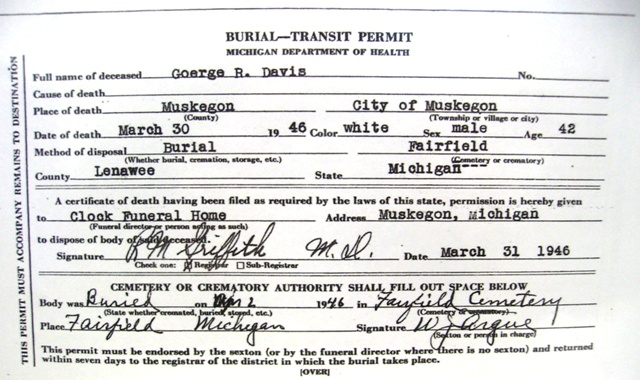 BURIAL—TRANSIT PERMIT
MICHIGAN DEPARTMENT OF HEALTH
THIS PERMIT MUST ACCOMPANY REMAINS TO DESTINATION
Full name of deceased Goerge R. Davis No.
Cause of death
Place of death Muskegon City of Muskegon
(County) (Township or village or city)
Date of death March 30 19 46 Color white Sex male Age 42
Method of disposal Burial Fairfield
(Whether burial, cremation, storage, etc.) (Cemetery or crematory)
County Lenawee State Michigan---
A certificate of death having been filed as required by the laws of this state, permission is hereby given
to Clock Funeral Home Address Muskegon, Michigan
(Funeral director or person acting as such)
to dispose of body of said deceased.
Signature R M Griffith M.D. Date March 31 1946
Check one: Registrar ☐ Sub-Registrar
CEMETERY OR CREMATORY AUTHORITY SHALL FILL OUT SPACE BELOW
Body was Buried on Apr 2 1946 in Fayfield Cemetery
(State whether cremated, buried, stored, etc.) (Cemetery or crematory)
Place Fairfield Michigan Signature W J Argue
(Sexton or person in charge)
This permit must be endorsed by the sexton (or by the funeral director where there is no sexton) and returned
within seven days to the registrar of the district in which the burial takes place.
[OVER]